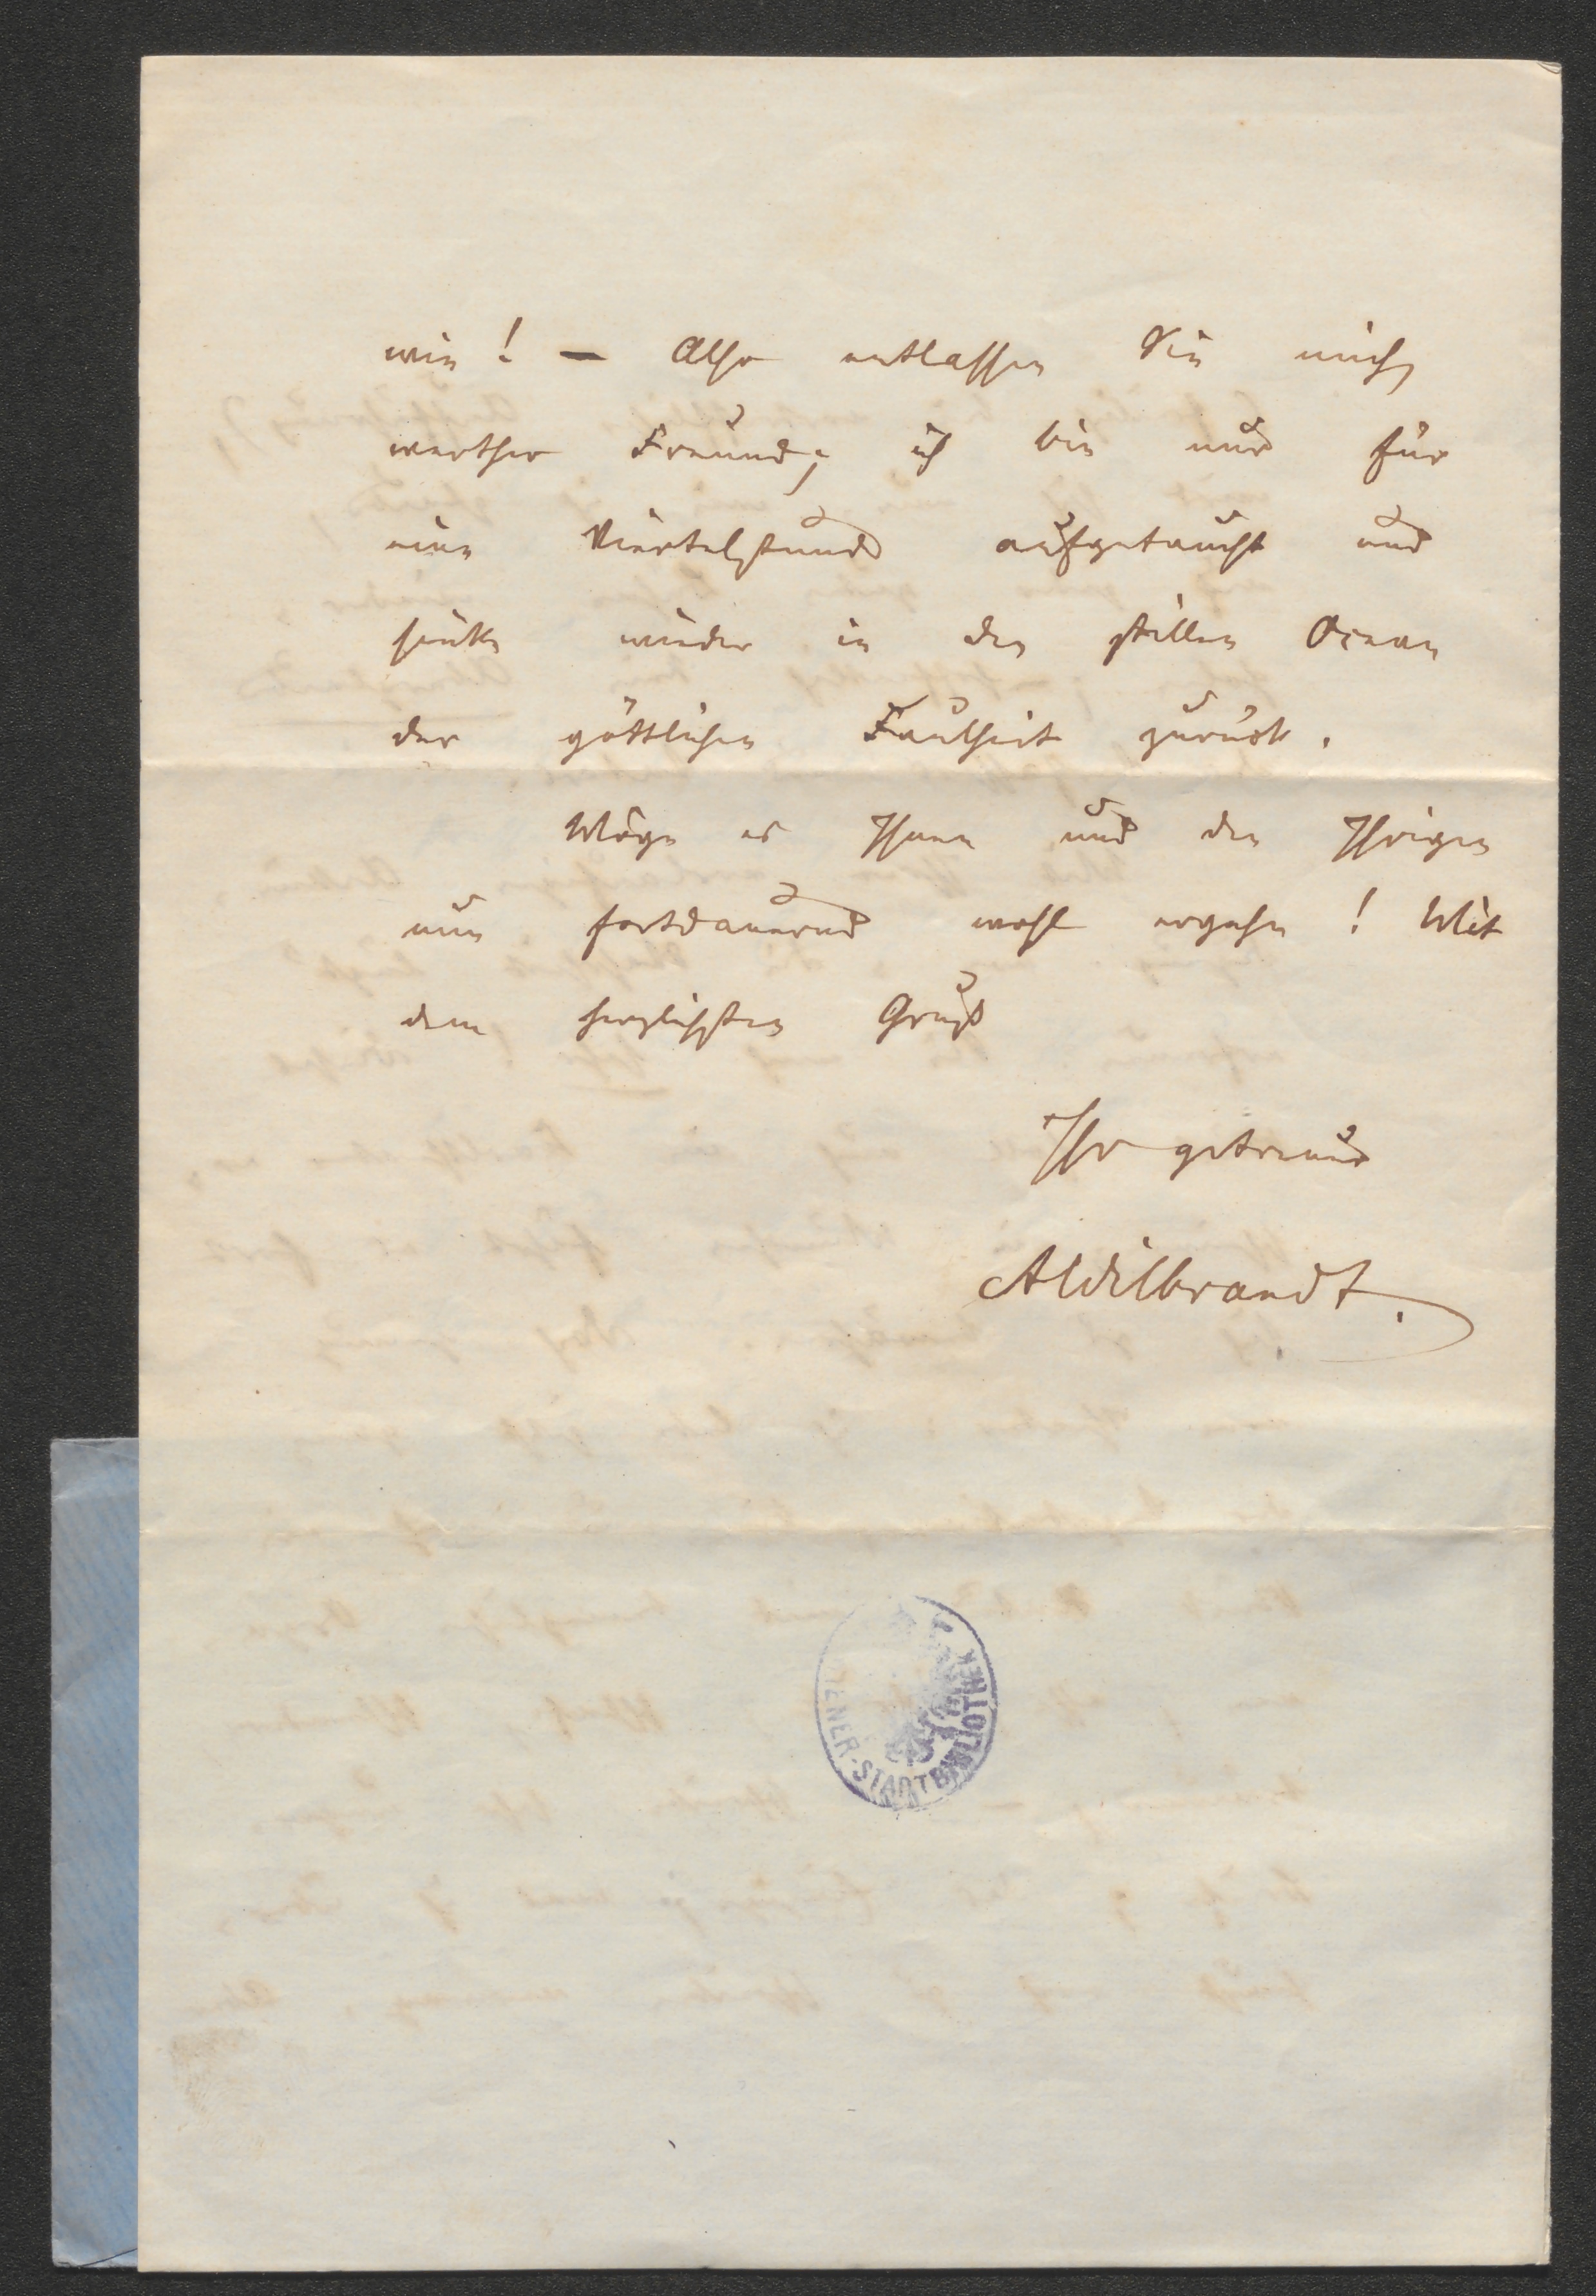 wie! – Also entlassen Sie mich,
werther Freund; ich bin nur für
eine Viertelstunde aufgetaucht und
sinke wieder in den stillen Ocean
der göttlichen Faulheit zurück.
Möge es Ihnen und den Ihrigen
nun fortdauernd wohl ergehn! Mit
dem herzlichsten Gruß
Ihr getreuer
AWilbrandt.
IENER-STADTBIBLIOTHEK